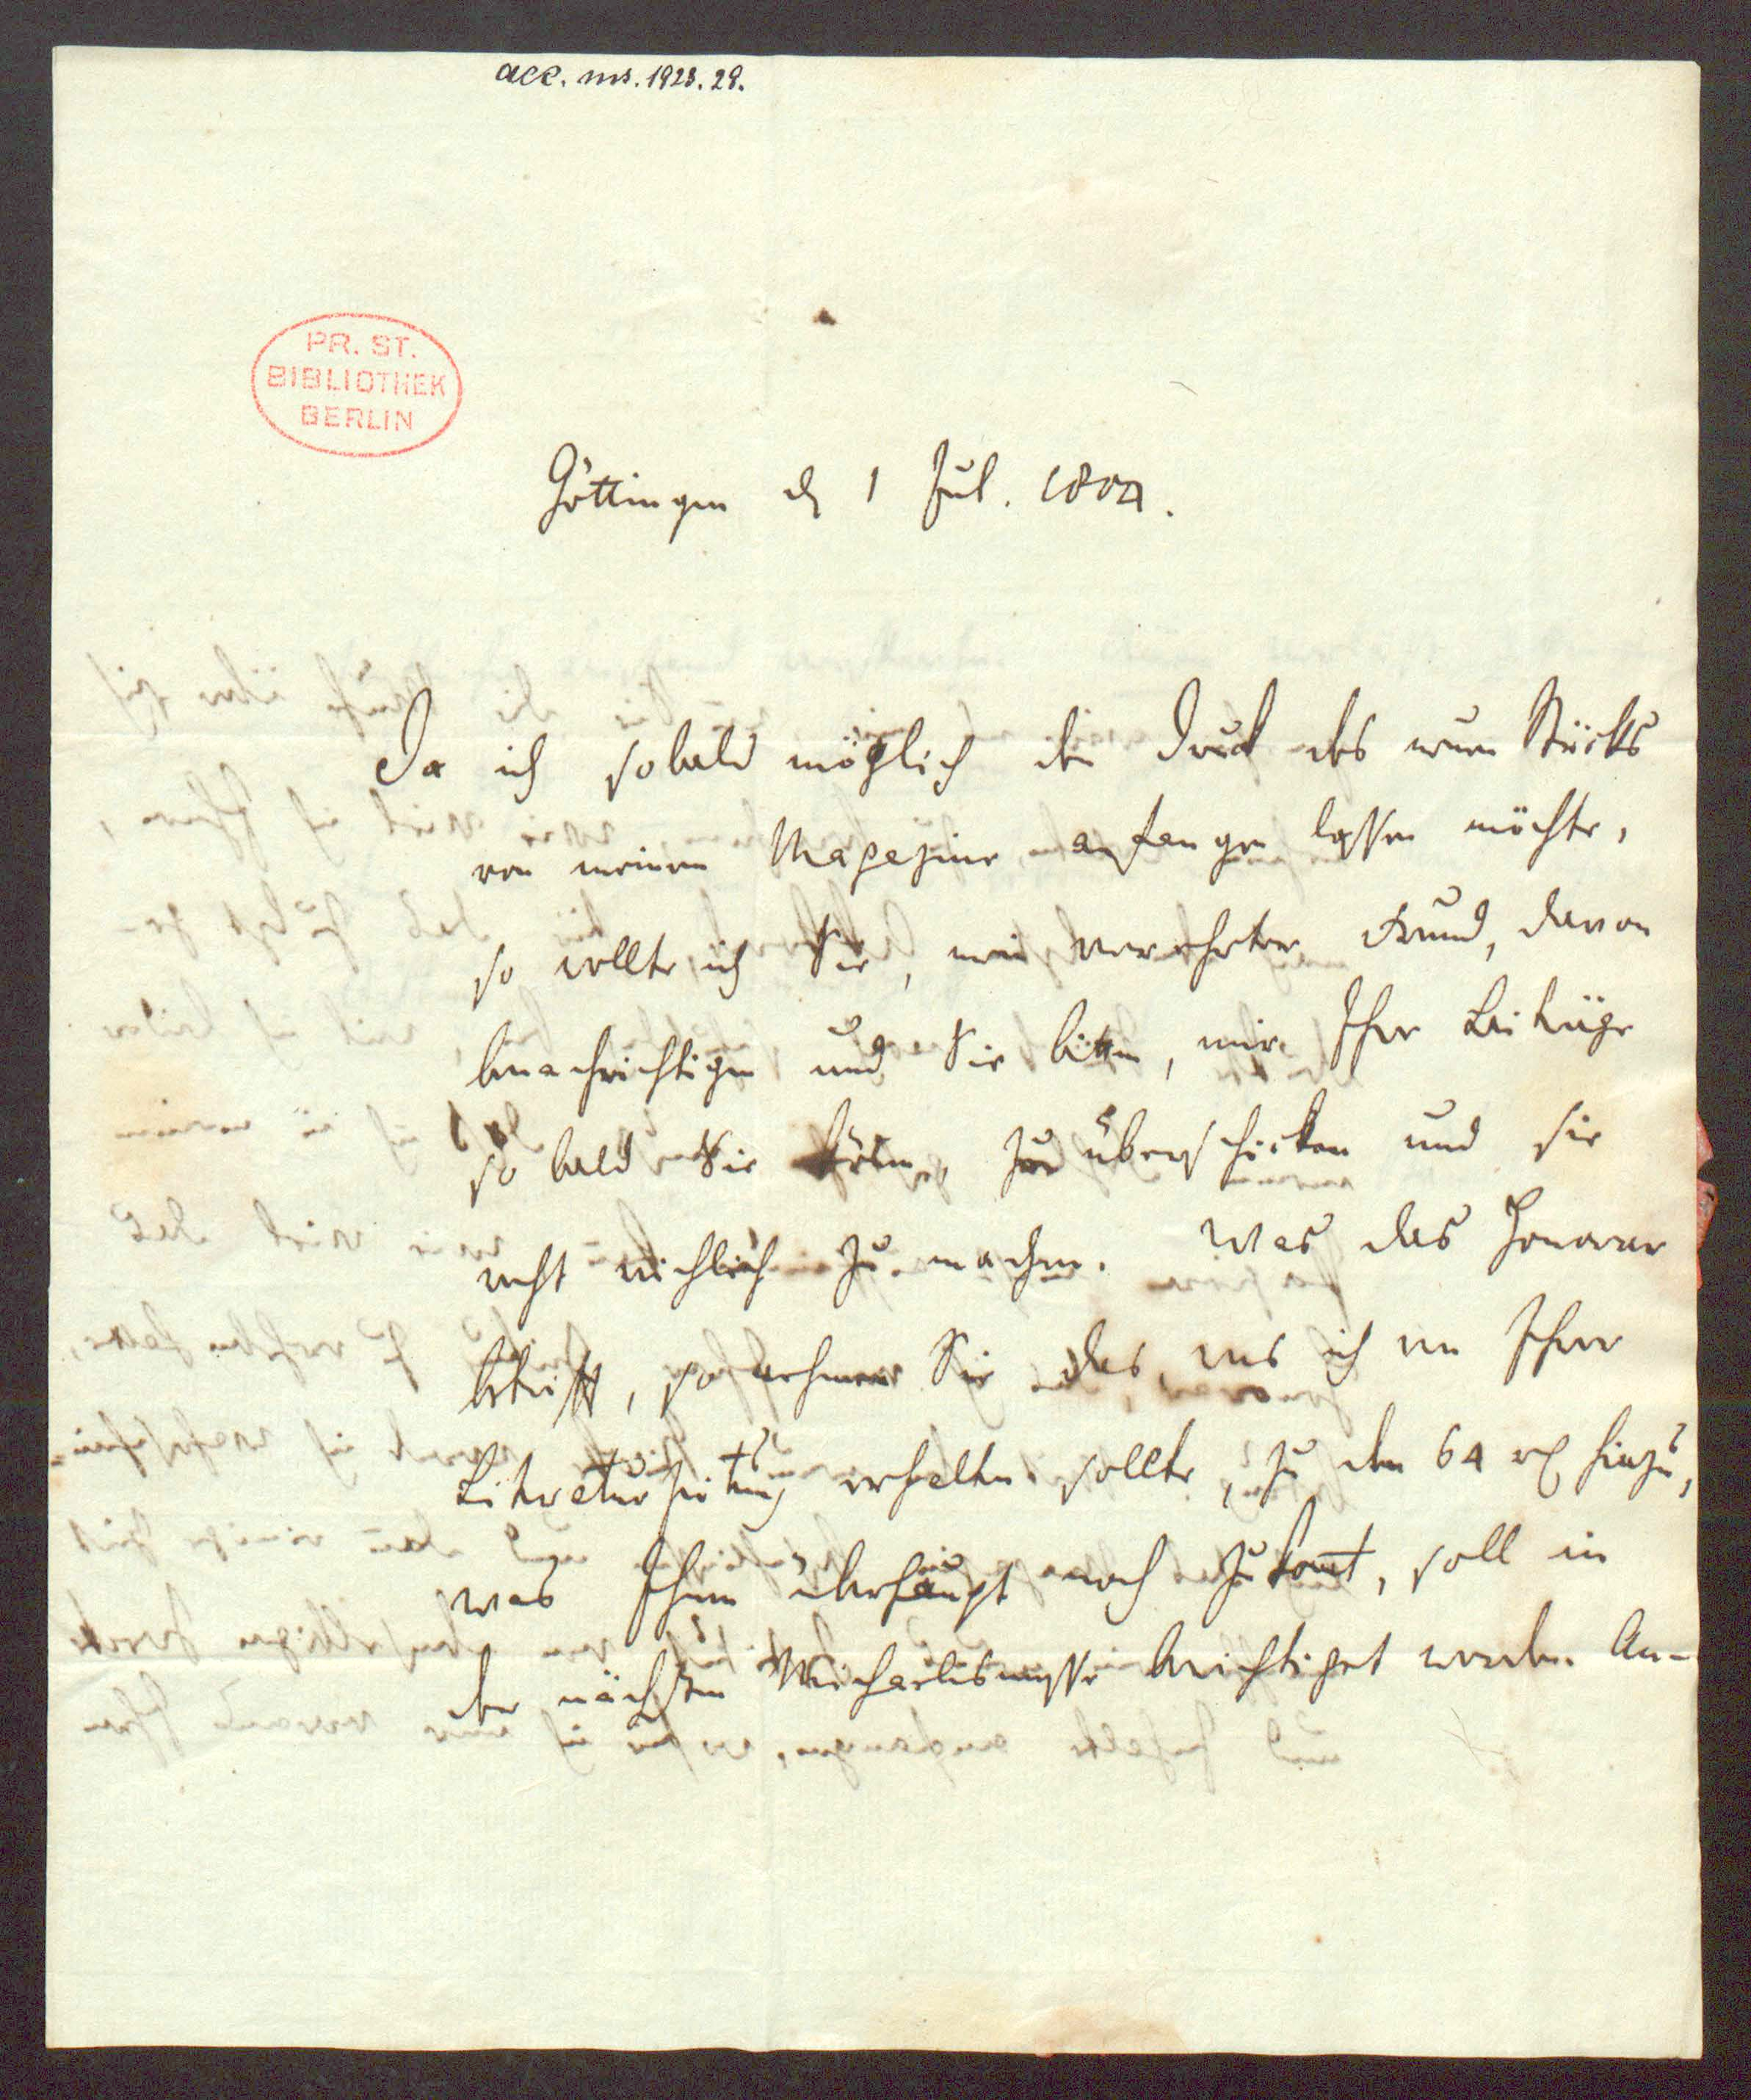 acc. ms. 1923. 29.
PR. ST.
BIBLIOTHEK
BERLIN
Göttingen d 1 Jul. 1804.
Da ich sobald möglich den Druck des neuen Stücks
von meinem Magazine anfangen lassen möchte,
so wollte ich Sie, mein verehrter Freund, davon
benachrichtigen und Sie bitten, mir Ihre Beiträge
so bald Sie können, zu überschicken und sie
recht reichlich zu machen. Was das Honorar
betrifft, so nehmen Sie das, was ich von Ihrer
Literaturzeitung erhalten sollte, zu den 64 rl hinzu,
was Ihnen überhaupt noch zukomt, soll in
der nächsten Michaelismesse berichtiget werden. An-